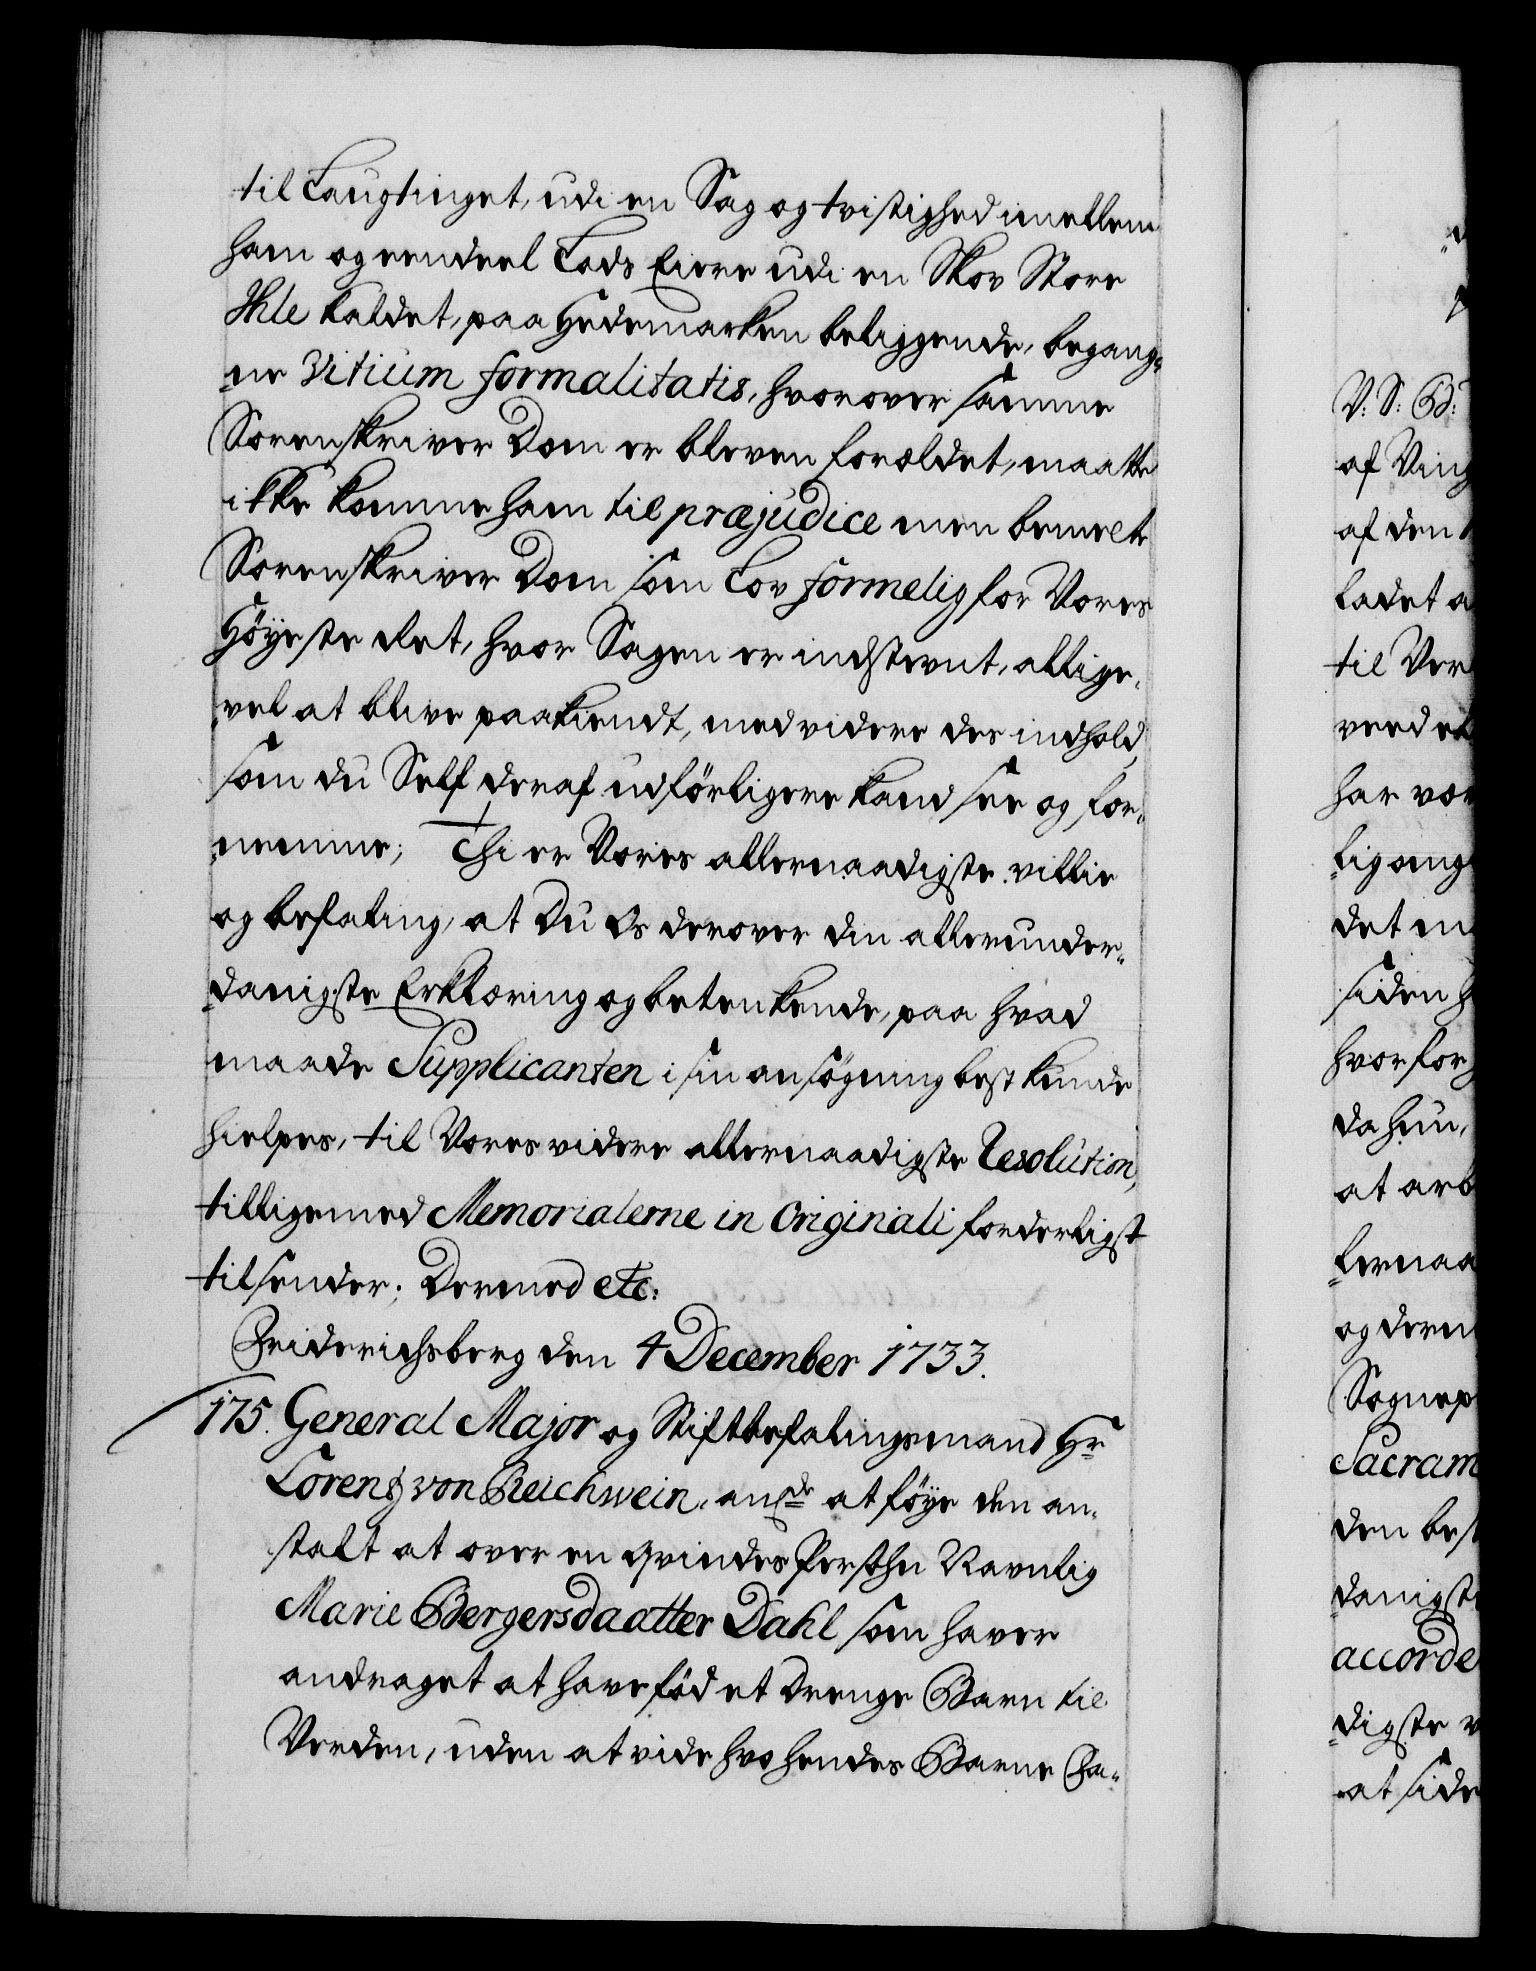 til Laugtinget, udi en Sag og tvistighed imellem
ham og eendeel Lods Eiere udi en Skov Store
Ihle kaldet, paa Hedemarken beliggende, begang-
ne Vitium formalitatis, hvorover samme
Sorenskriver Dom er bleven forældet, maatte
ikke komme ham til præjudice men bemelte
Sorenskriver Dom som Lov formelig for Vores
Höyeste Ret, hvor Sagen er indstevnt, allige-
vel at blive paakiendt, med videre des indhold,
som du Self deraf udförligere kand see og for-
nemme; Thi er Vores allernaadigste villie
og befaling, at Du Os derover din allerunder-
danigste Erklæring og betenkende, paa hvad
maade Supplicanten i sin ansögning best kunde
hielpes, til Vores videre allernaadigste Resolution,
tilligemed Memorialerne in Originali forderligst
tilsender; Dermed etc:
Friderichsberg den 4 December 1733.
175. General Major og Stiftbefalingsmand Hr
Lorentz von Reichwein, anlde at föye den an-
stalt at over en qvindes Persohn Navnlig
Marie Bergersdaatter Dahl som haver
andraget at have föd et Drenge Barn til
Verden, uden at vide hvo hendes Barne Fa-
V: S: G:
af Ving
af den
ladet a
til Ver
veed
har vær
lig omg
det
siden h
hvorfor
da hun,
at arb
lernaa
og derm
Sognep
Sacram
den best
danigst
accorde
digste v
at side